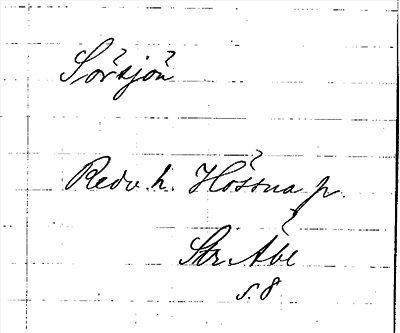 Sörsjön
Redv. h. Hössna p.
Str.
s. 8